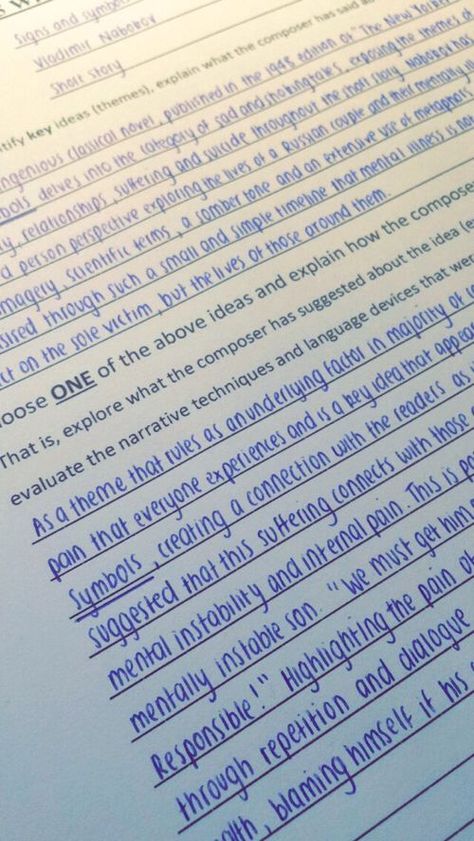 Signs and symbols
Vladimir Nabokov
Short story
ntify key ideas (themes), explain what the composer has said abo
ngenious classical novel, published in the 1948 edition of "The New Yorker
bols delves into the category of sad and shocking tales, exploring the themes of
ty, relationships, suffering and suicide throughout the short story. Nabokov ha
d person perspective exploring the lives of a Russian couple and their mentally ill
imagery, scientific terms, a somber tone and an extensive use of metaphors
sired through such a small and simple timeline that mental illness is not
ct on the sole victim, but the lives of those around them.
oose ONE of the above ideas and explain how the compose
That is, explore what the composer has suggested about the idea (e
evaluate the narrative techniques and language devices that wer
As a theme that rules as an underlying factor in majority of
pain that everyone experiences and is a key idea that appea
Symbols, creating a connection with the readers as
suggested that this suffering connects with those
mental instability and internal pain. This is
mentally instable son. "We must get him
Responsible!" Highlighting the pain
through repetition and dialogue
alth, blaming himself if his